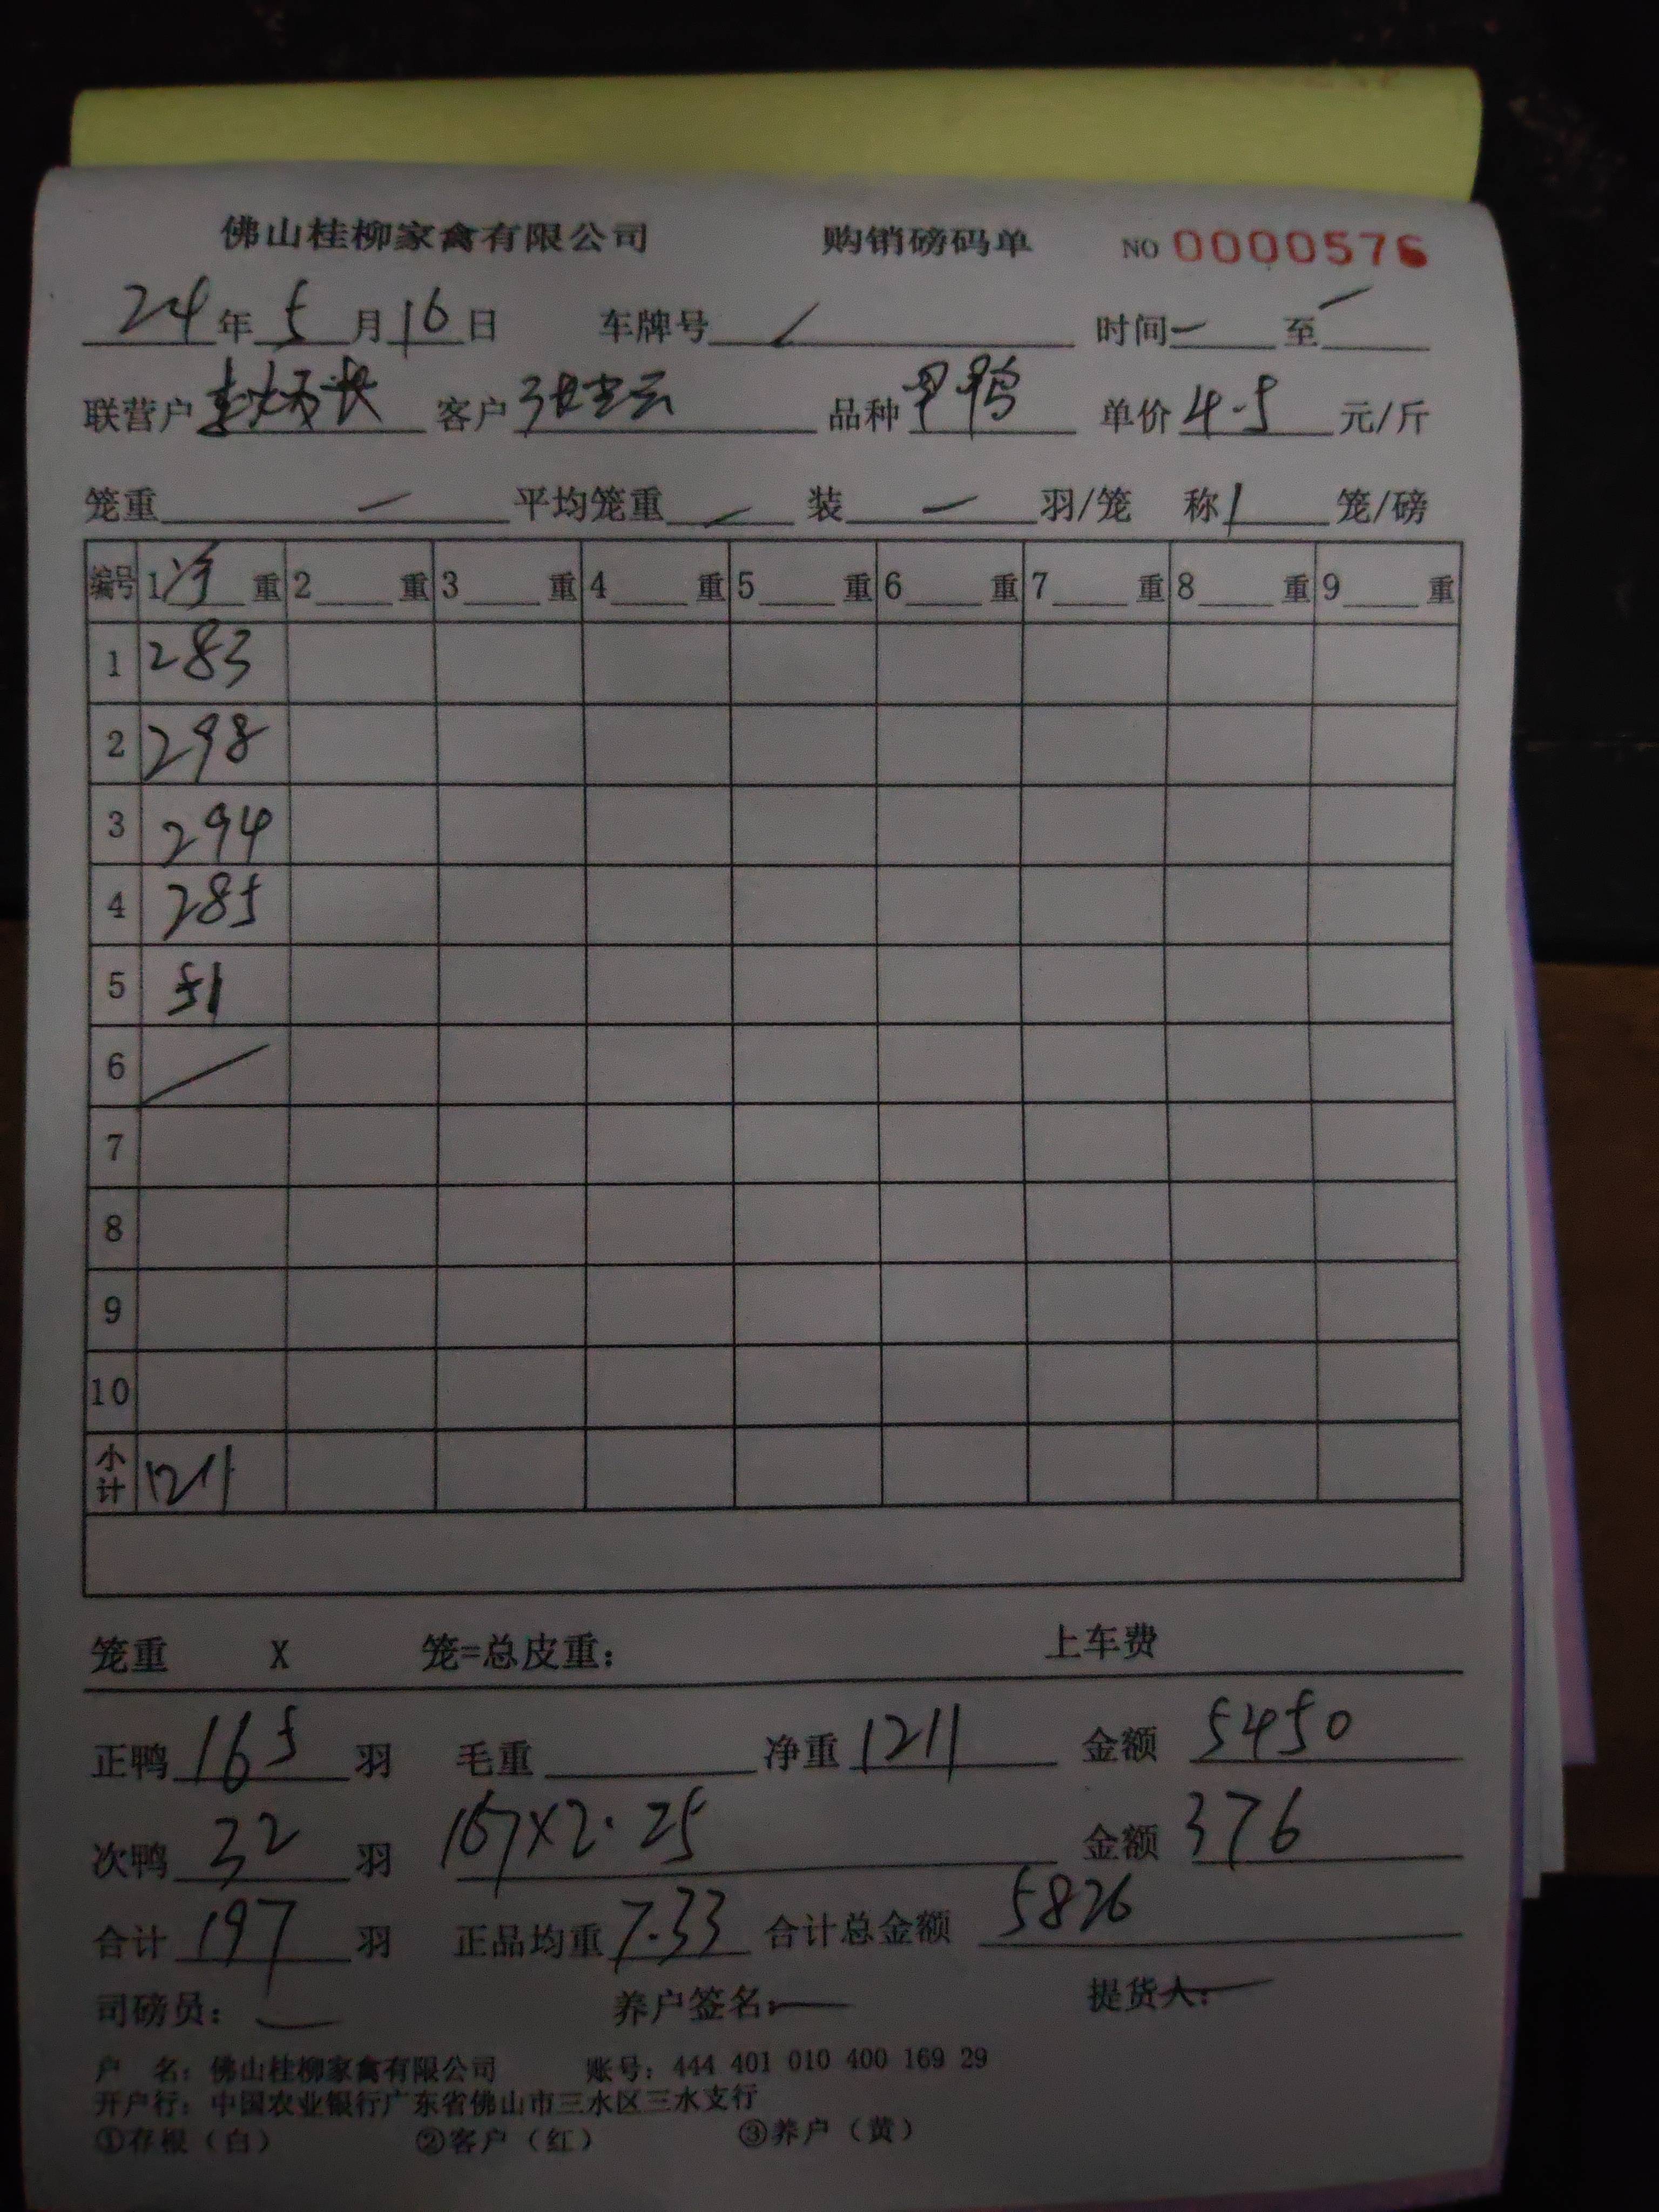 佛山桂柳家禽有限公司 购销磅码单 NO 0000576
24年5月16日 车牌号 / 时间 一 至 一
联营户 李炳长 客户 张 云 品种 甲鸭 单价 4.5 元/斤
笼重 一 平均笼重 一 装 一 羽/笼 称 1 笼/磅
编号 1 净 重 2 重 3 重 4 重 5 重 6 重 7 重 8 重 9 重
1 283
2 298
3 294
4 285
5 51
6 /
7
8
9
10
小计 1211
笼重 X 笼=总皮重: 上车费
正鸭 165 羽 毛重 净重 1211 金额 5450
次鸭 32 羽 167×2.25 金额 376
合计 197 羽 正品均重 7.33 合计总金额 5826
司磅员: 一 养户签名: 一 提货人: 一
户 名: 佛山桂柳家禽有限公司 账号: 444 401 010 400 169 29
开户行: 中国农业银行广东省佛山市三水区三水支行
①存根(白) ②客户(红) ③养户(黄)